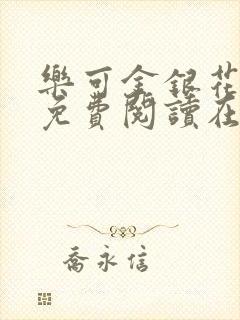 樂可金銀花
免費閱讀在
喬永信